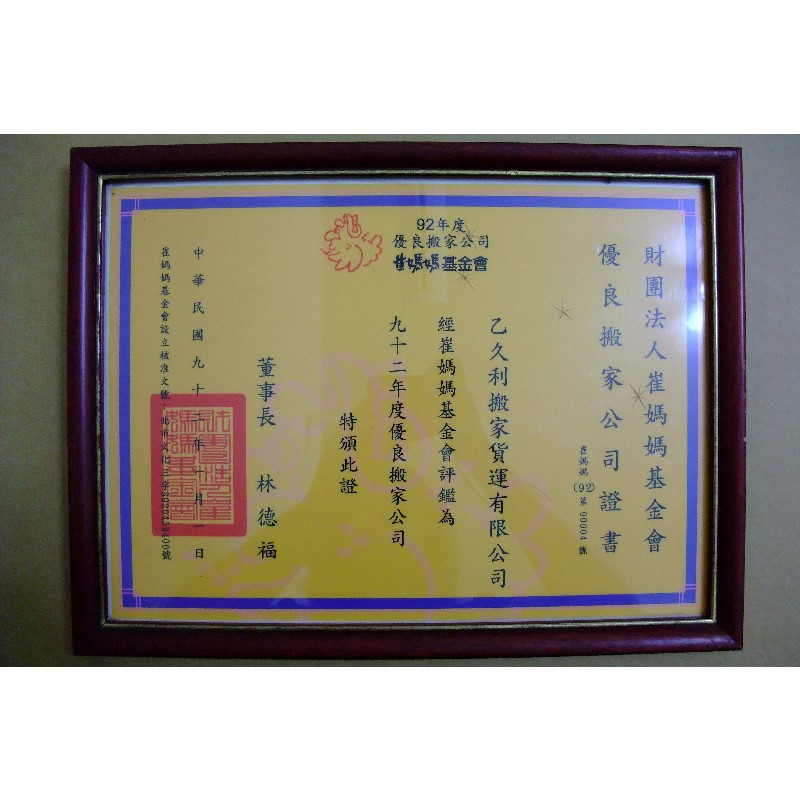 92年度
優良搬家公司
崔媽媽基金會
財團法人崔媽媽基金會
優良搬家公司證書
崔媽媽(92)第00004號
乙久利搬家貨運有限公司
經崔媽媽基金會評鑑為
九十二年度優良搬家公司
特頒此證
董事長 林德福
中華民國九十二年十月一日
崔媽媽基金會設立核准文號：